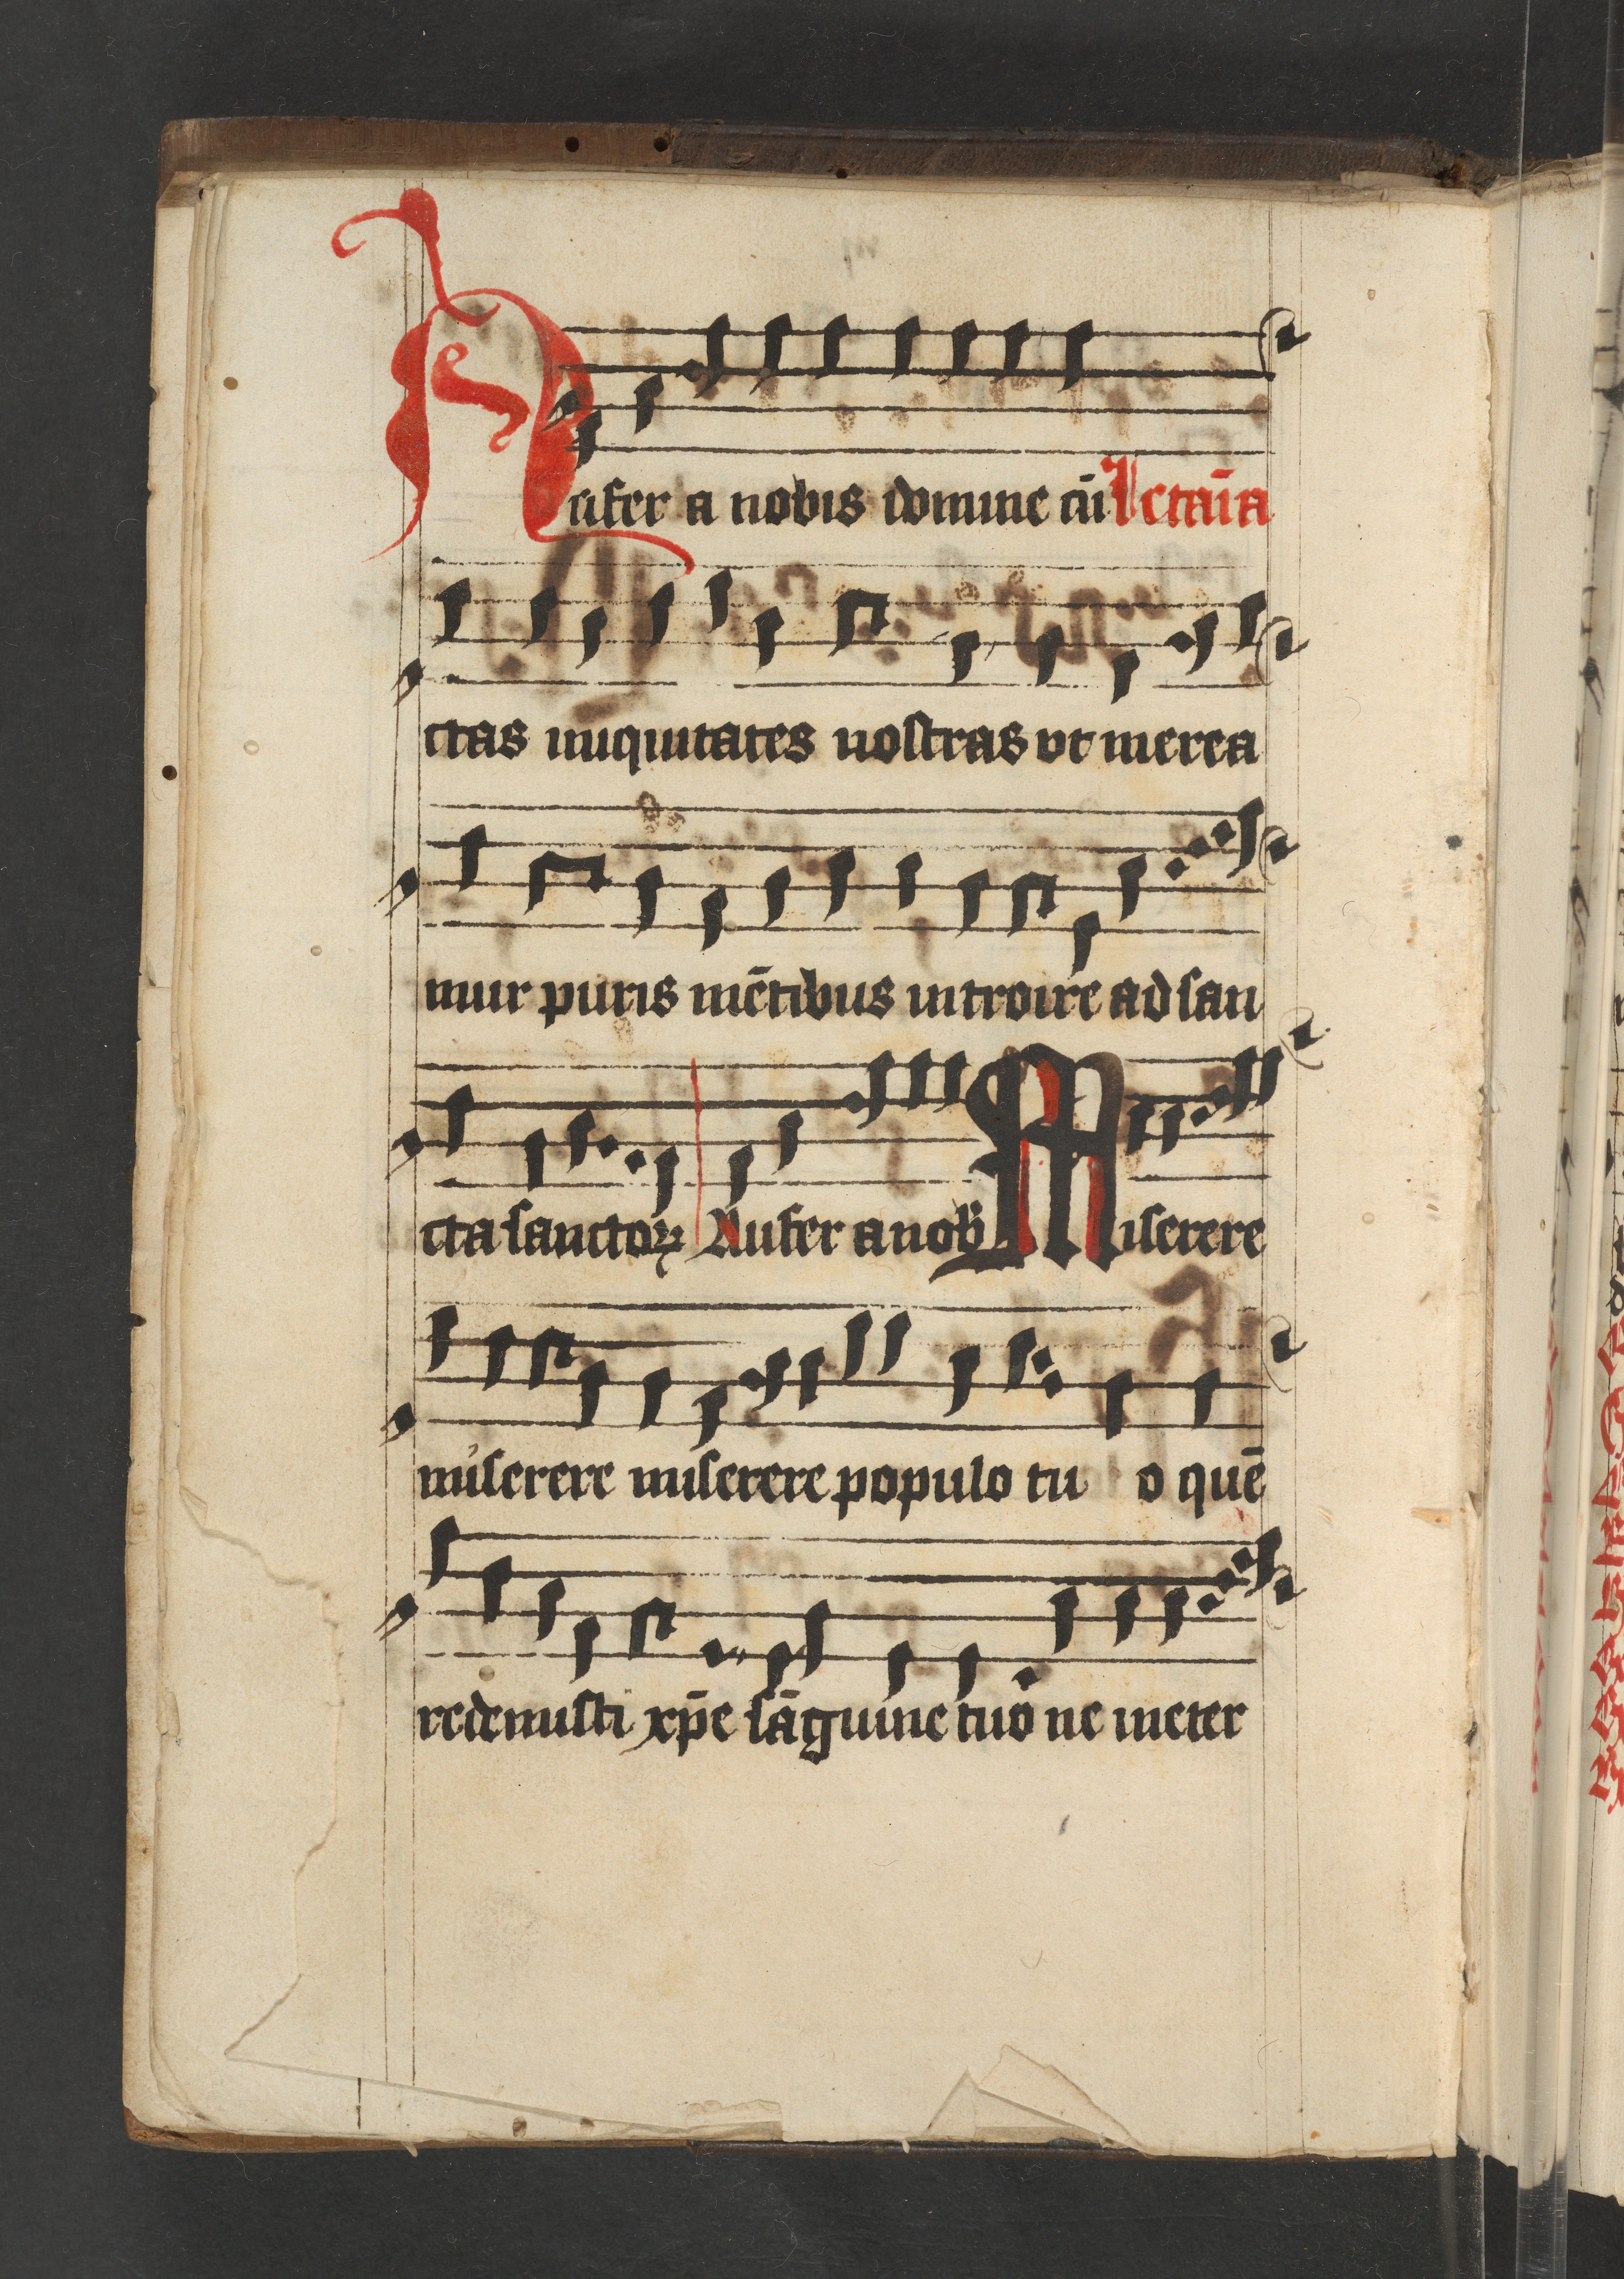 Aufer a nobis domine cū letaīa
ctas iniquitates nostras vt merea
mur puris mētibus introire ad san
cta sanctoꝝ Aufer a nob Miserere
miserere miserere populo tu o quē
redemisti xp̄e sāguine tuo ne ineter